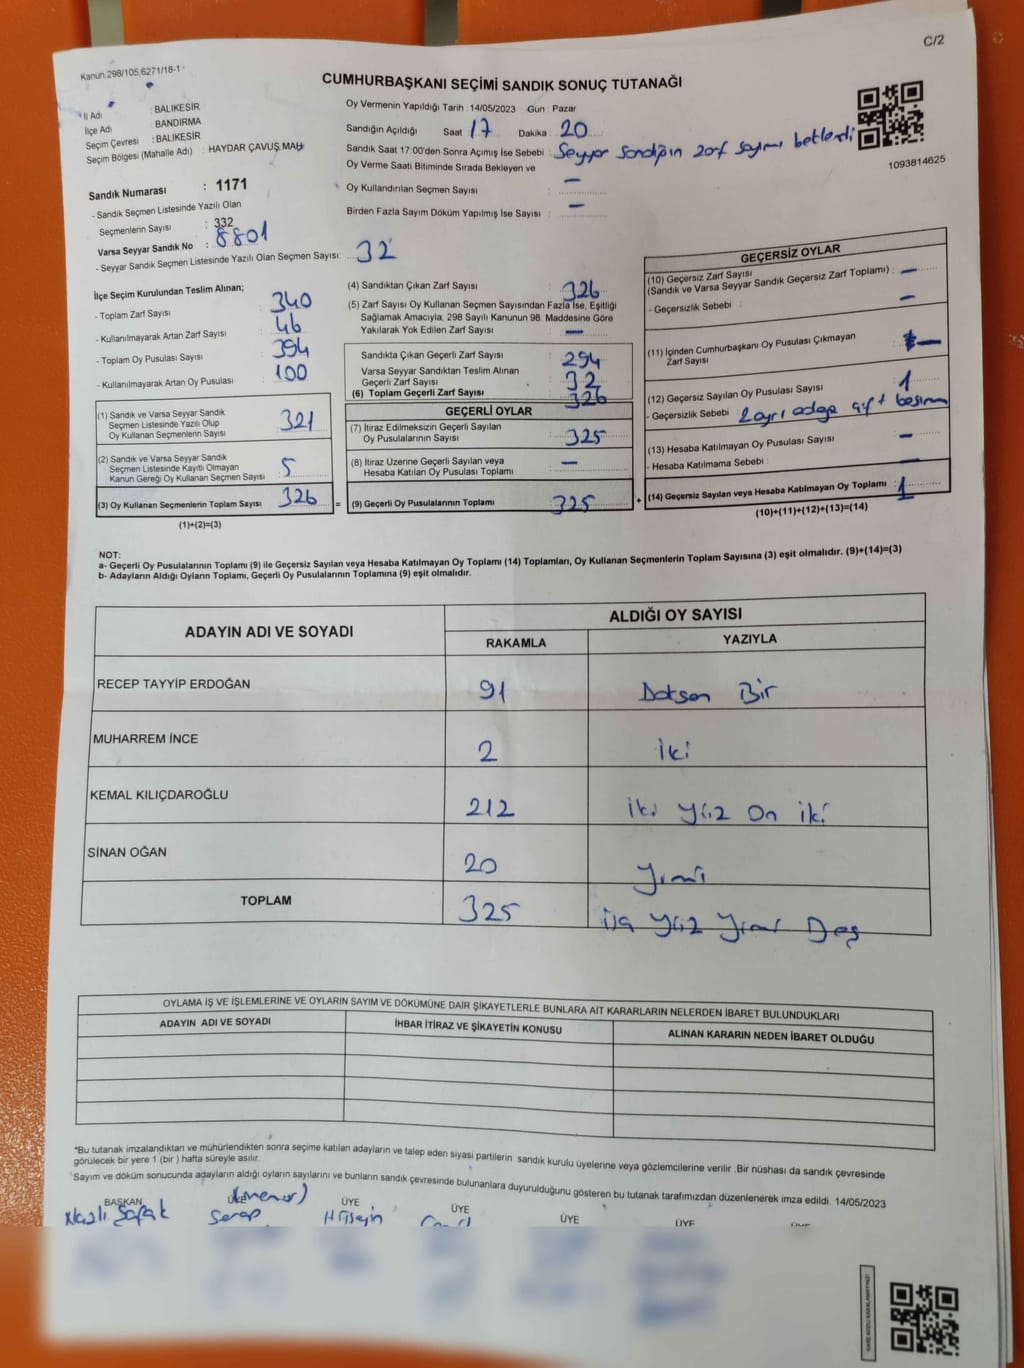 C/2
Kanun.298/105.6271/18-1
CUMHURBAŞKANI SEÇİMİ SANDIK SONUÇ TUTANAĞI
İl Adı : BALIKESİR
İlçe Adı : BANDIRMA
Seçim Çevresi : BALIKESİR
Seçim Bölgesi (Mahalle Adı) : HAYDAR ÇAVUŞ MAH
Sandık Numarası : 1171
- Sandık Seçmen Listesinde Yazılı Olan
Seçmenlerin Sayısı : 332
Varsa Seyyar Sandık No : 8801
- Seyyar Sandık Seçmen Listesinde Yazılı Olan Seçmen Sayısı: 32
Oy Vermenin Yapıldığı Tarih : 14/05/2023 Gün : Pazar
Sandığın Açıldığı Saat 17 Dakika : 20
Sandık Saat 17:00'den Sonra Açımış İse Sebebi : Seyyar Sandığın zarf sayımı beklendi
Oy Verme Saati Bitiminde Sırada Bekleyen ve
Oy Kullandırılan Seçmen Sayısı : –
Birden Fazla Sayım Döküm Yapılmış İse Sayısı : –
1093814625
İlçe Seçim Kurulundan Teslim Alınan;
- Toplam Zarf Sayısı : 340
- Kullanılmayarak Artan Zarf Sayısı : 46
- Toplam Oy Pusulası Sayısı : 394
- Kullanılmayarak Artan Oy Pusulası : 100
(1) Sandık ve Varsa Seyyar Sandık
Seçmen Listesinde Yazılı Olup
Oy Kullanan Seçmenlerin Sayısı : 321
(2) Sandık ve Varsa Seyyar Sandık
Seçmen Listesinde Kayıtlı Olmayan
Kanun Gereği Oy Kullanan Seçmen Sayısı : 5
(3) Oy Kullanan Seçmenlerin Toplam Sayısı : 326 =
(1)+(2)=(3)
(4) Sandıktan Çıkan Zarf Sayısı : 326
(5) Zarf Sayısı Oy Kullanan Seçmen Sayısından Fazla İse, Eşitliği
Sağlamak Amacıyla, 298 Sayılı Kanunun 98. Maddesine Göre
Yakılarak Yok Edilen Zarf Sayısı : –
Sandıkta Çıkan Geçerli Zarf Sayısı : 294
Varsa Seyyar Sandıktan Teslim Alınan
Geçerli Zarf Sayısı : 32
(6) Toplam Geçerli Zarf Sayısı : 326
GEÇERLİ OYLAR
(7) İtiraz Edilmeksizin Geçerli Sayılan
Oy Pusulalarının Sayısı : 325
(8) İtiraz Üzerine Geçerli Sayılan veya
Hesaba Katılan Oy Pusulası Toplamı : –
(9) Geçerli Oy Pusulalarının Toplamı : 325 +
GEÇERSİZ OYLAR
(10) Geçersiz Zarf Sayısı
(Sandık ve Varsa Seyyar Sandık Geçersiz Zarf Toplamı) : –
- Geçersizlik Sebebi : –
(11) İçinden Cumhurbaşkanı Oy Pusulası Çıkmayan
Zarf Sayısı : –
(12) Geçersiz Sayılan Oy Pusulası Sayısı : 1
- Geçersizlik Sebebi : 2 ayrı adaya çift basım
(13) Hesaba Katılmayan Oy Pusulası Sayısı : –
- Hesaba Katılmama Sebebi : –
(14) Geçersiz Sayılan veya Hesaba Katılmayan Oy Toplamı : 1
(10)+(11)+(12)+(13)=(14)
NOT:
a- Geçerli Oy Pusulalarının Toplamı (9) ile Geçersiz Sayılan veya Hesaba Katılmayan Oy Toplamı (14) Toplamları, Oy Kullanan Seçmenlerin Toplam Sayısına (3) eşit olmalıdır. (9)+(14)=(3)
b- Adayların Aldığı Oyların Toplamı, Geçerli Oy Pusulalarının Toplamına (9) eşit olmalıdır.
ADAYIN ADI VE SOYADI ALDIĞI OY SAYISI
RAKAMLA YAZIYLA
RECEP TAYYİP ERDOĞAN 91 Doksan Bir
MUHARREM İNCE 2 İki
KEMAL KILIÇDAROĞLU 212 İki Yüz On İki
SİNAN OĞAN 20 Yirmi
TOPLAM 325 Üç Yüz Yirmi Beş
OYLAMA İŞ VE İŞLEMLERİNE VE OYLARIN SAYIM VE DÖKÜMÜNE DAİR ŞİKAYETLERLE BUNLARA AİT KARARLARIN NELERDEN İBARET BULUNDUKLARI
ADAYIN ADI VE SOYADI İHBAR İTİRAZ VE ŞİKAYETİN KONUSU ALINAN KARARIN NEDEN İBARET OLDUĞU
*Bu tutanak imzalandıktan ve mühürlendikten sonra seçime katılan adayların ve talep eden siyasi partilerin sandık kurulu üyelerine veya gözlemcilerine verilir .Bir nüshası da sandık çevresinde
görülecek bir yere 1 (bir ) hafta süreyle asılır.
*Sayım ve döküm sonucunda adayların aldığı oyların sayılarını ve bunların sandık çevresinde bulunanlara duyurulduğunu gösteren bu tutanak tarafımızdan düzenlenerek imza edildi. 14/05/2023
BAŞKAN ÜYE (memur) ÜYE ÜYE ÜYE ÜYE ÜYE
Nazlı Şafak Serap Hüseyin